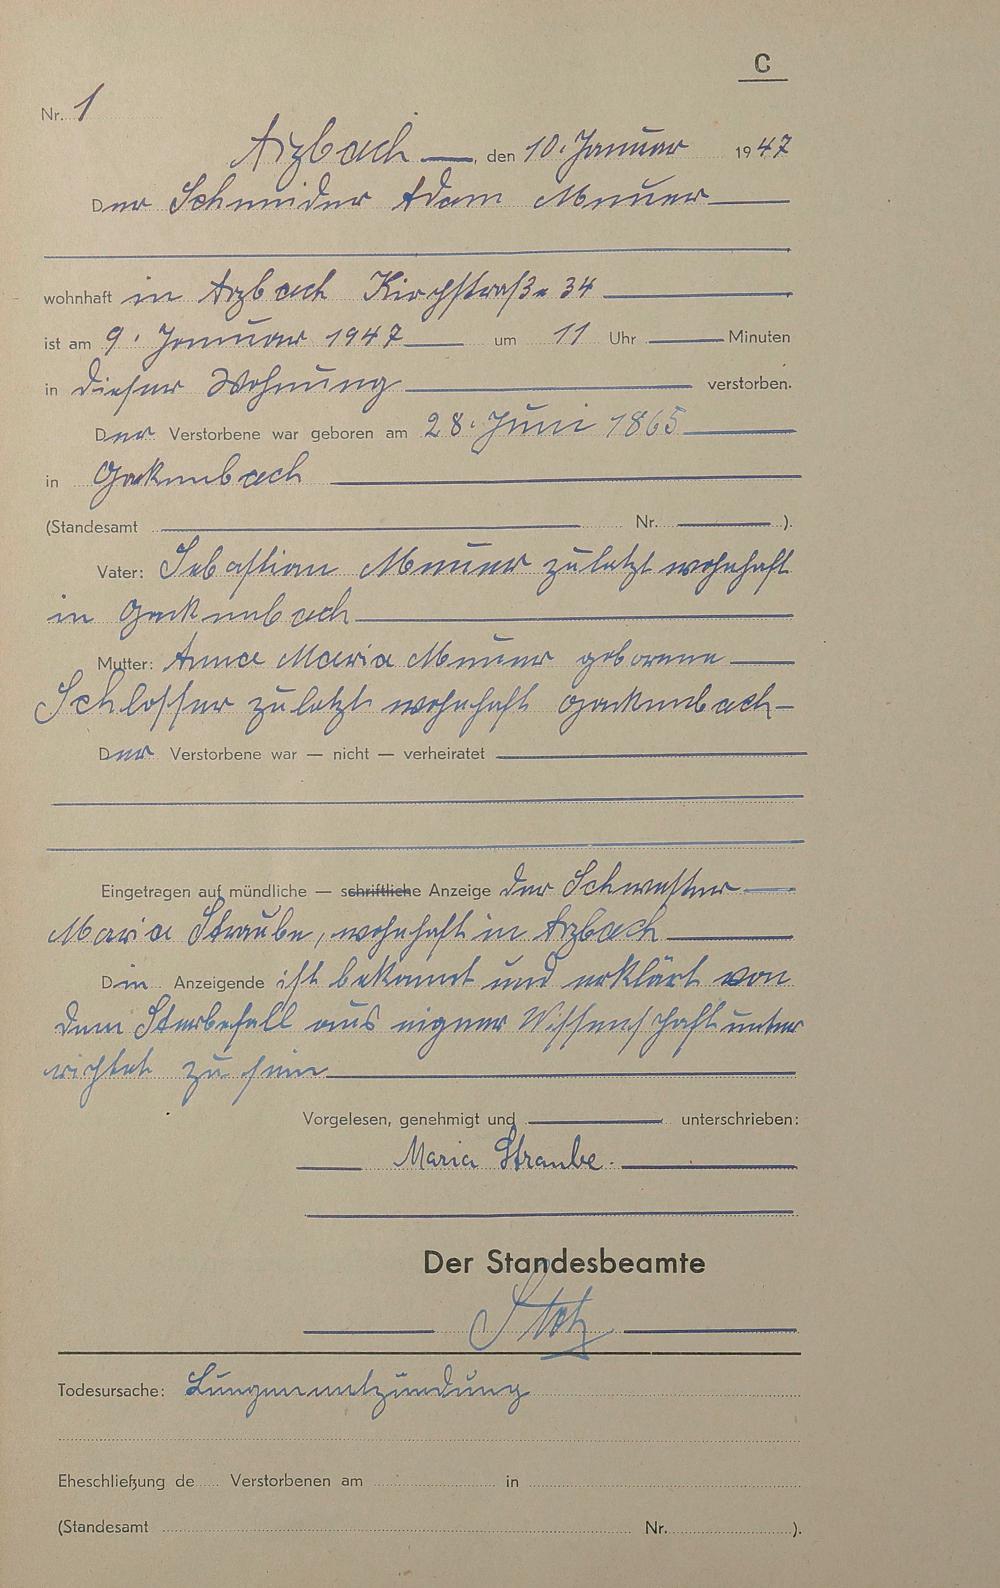 C
Nr. 1
Arzbach, den 10. Januar 1947
Der Schneider Adam Meuer
wohnhaft in Arzbach Kirchstraße 34
ist am 9. Januar 1947 um 11 Uhr Minuten
in dieser Wohnung verstorben.
Der Verstorbene war geboren am 28. Juni 1865
in Gackenbach
(Standesamt Nr. ).
Vater: Sebastian Meuer zuletzt wohnhaft
in Gackenbach
Mutter: Anna Maria Meuer geborene
Schlosser zuletzt wohnhaft Gackenbach
Der Verstorbene war — nicht — verheiratet
Eingetragen auf mündliche — schriftliche Anzeige der Schwester
Maria Straube, wohnhaft in Arzbach
Die Anzeigende ist bekannt und erklärt von
dem Sterbefall aus eigner Wissenschaft unter
richtet zu sein
Vorgelesen, genehmigt und unterschrieben:
Maria Straube.
Der Standesbeamte
Todesursache: Lungenentzündung
Eheschließung de Verstorbenen am in
(Standesamt Nr. ).